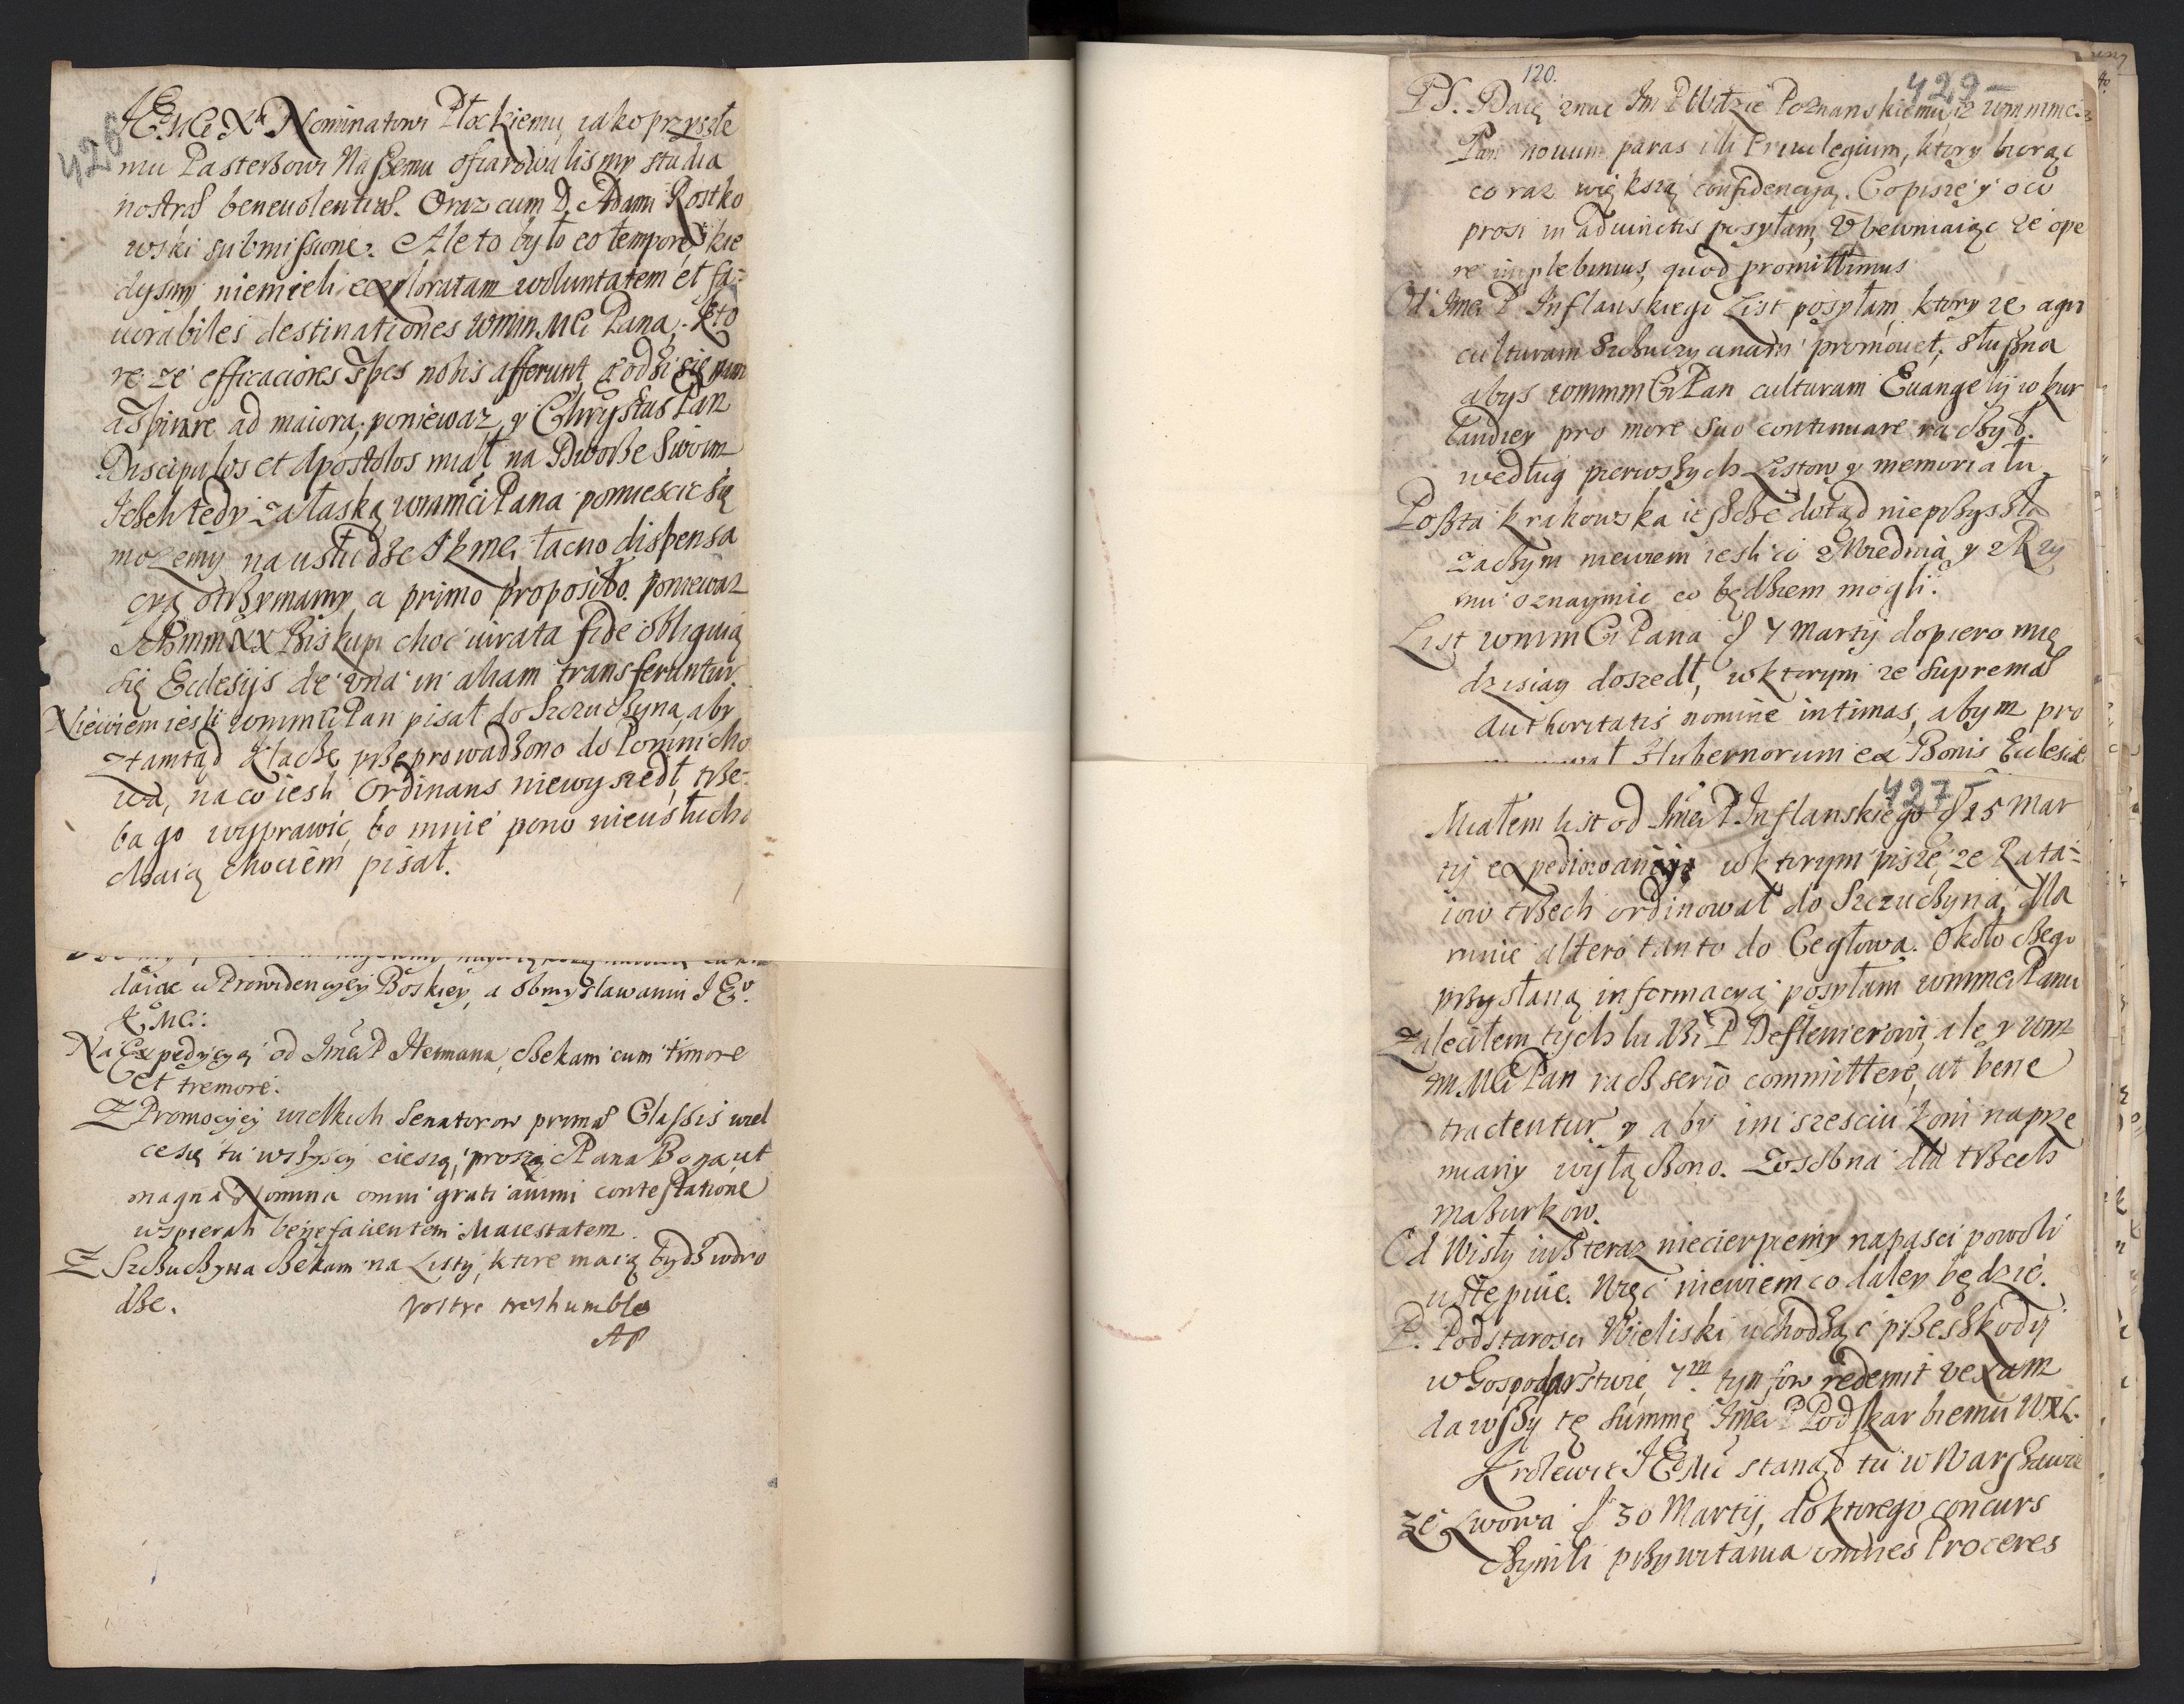 426
JEMCi Xdu Nominatowi Płockiemu, iako przyszłe
mu Pasterzowi Naszemu ofiarowalismy studia
nostras beneuolentias. Oraz cum D. Adami Rostko
wski submissione. Ale to było eo tempore, kie
dysmy niemieli exploratam voluntatem et fa-
uorabiles destinationes WMM MCi Pana. Kto
re ze efficaciores Spes nobis afferunt, godzi się nam
aspirare ad maiora, poniewaz y Chrystus Pan
Discipulos et Apostolos miał na Dworze Swoim
Jezeli tedy za łaską wmmci Pana pomiescic się
mozemy na usłudze JKmci, łacno dispensa
cyą otrzymamy a primo proposito. poniewaz
XX Biskupi choc iurata fide obliguią
się Eclesijs de una in aliam transferuntur.
Niewiem iesli wmmCiPan pisał do Szczuczyna, aby
ztamtąd Klacze przeprowadzono do Pomnicho
wa, na co iesli Ordinans niewyszedł, trze-
ba go wyprawic, bo mnie pono nieusłucha
chociem pisał.
daiąc w Prowidencyey Boskiey, a obmyslawaniu J Eo.
K MCi.
Na Expedycyą od Jmci P Hetmana, czekam cum timore
et tremore.
Z Promocyey wielkich Senatorow primæ Classis wiel
ce się tu wszyscy cieszą, proszą Pana Boga, ut
magna Nomina omni grati animi contestatione
wspierali benefacientem Maiestatem.
Z Szczuczyna czekam na Listy, ktore maią bydz w dro
dze. Vostre treshumble
AP
120.
429
PS. Daię znac Jm P Wdzie Poznanskiemu, iz wmmmci
Pan nouum paras illi Priuilegium, ktory biorąc
co raz większą confidencyą. Co pisze y o co
prosi in aduinctis posyłam, Vbewniaiąc ze ope
re implebimus, quod promittimus
Od Jmci P Inflanskiego List posyłam, ktory ze agri
culturam Szczuczycinam promouet, słuszna
abys wmmm CiPan culturam Euangelij w Kur
landiey pro more suo continuare raczył.
według pierwszych Listow y memoriału.
Poszta Krakowska ieszcze dotąd nieprzyszła
zaczym niewiem iesli co z Wiednia y z Rzy
mu oznaymic co będziem mogli.
List wmmCi Pana d 7 Martij dopiero mię
dzisiay doszedł, w ktorym ze supremæ
authoritatis nomine intimas, abym pro
Hybernorum ex Bonis Eclesiæ
427
Miałem list od Jmci P. Inflanskiego d 15 Mar
tij expediowany, w ktorym pisze, ze Rata-
iow trzech ordinował do Szczuczyna, Ma
mnie altero tanto do Cegłowa. Około czego
przysłaną informacyą posyłam wmmci Panu
Zaleciłem tych ludzi P Desflenierowi, ale y wm
m MCi Pan racz serio committere, ut bene
tractentur, y aby im szesciu koni na prze
miany wyłączono. Zosobna dla trzech
mazurkow.
Od Wisły iusz teraz niecierpiemy napasci powoli
ustępuie. Więc niewiem co daley będzie.
P. Podstarosci Wieliski uchodząc przeszkody
w Gospodarstwie, 7m tynfow redemit vexam
dawszy tę summę Jmci P Podskarbiemu WXL.
Krolewic JEMc stanął tu w Warszawie
ze Lwowa d 30 Martij, do ktorego concurs
czynili przywitania omnes Proceres